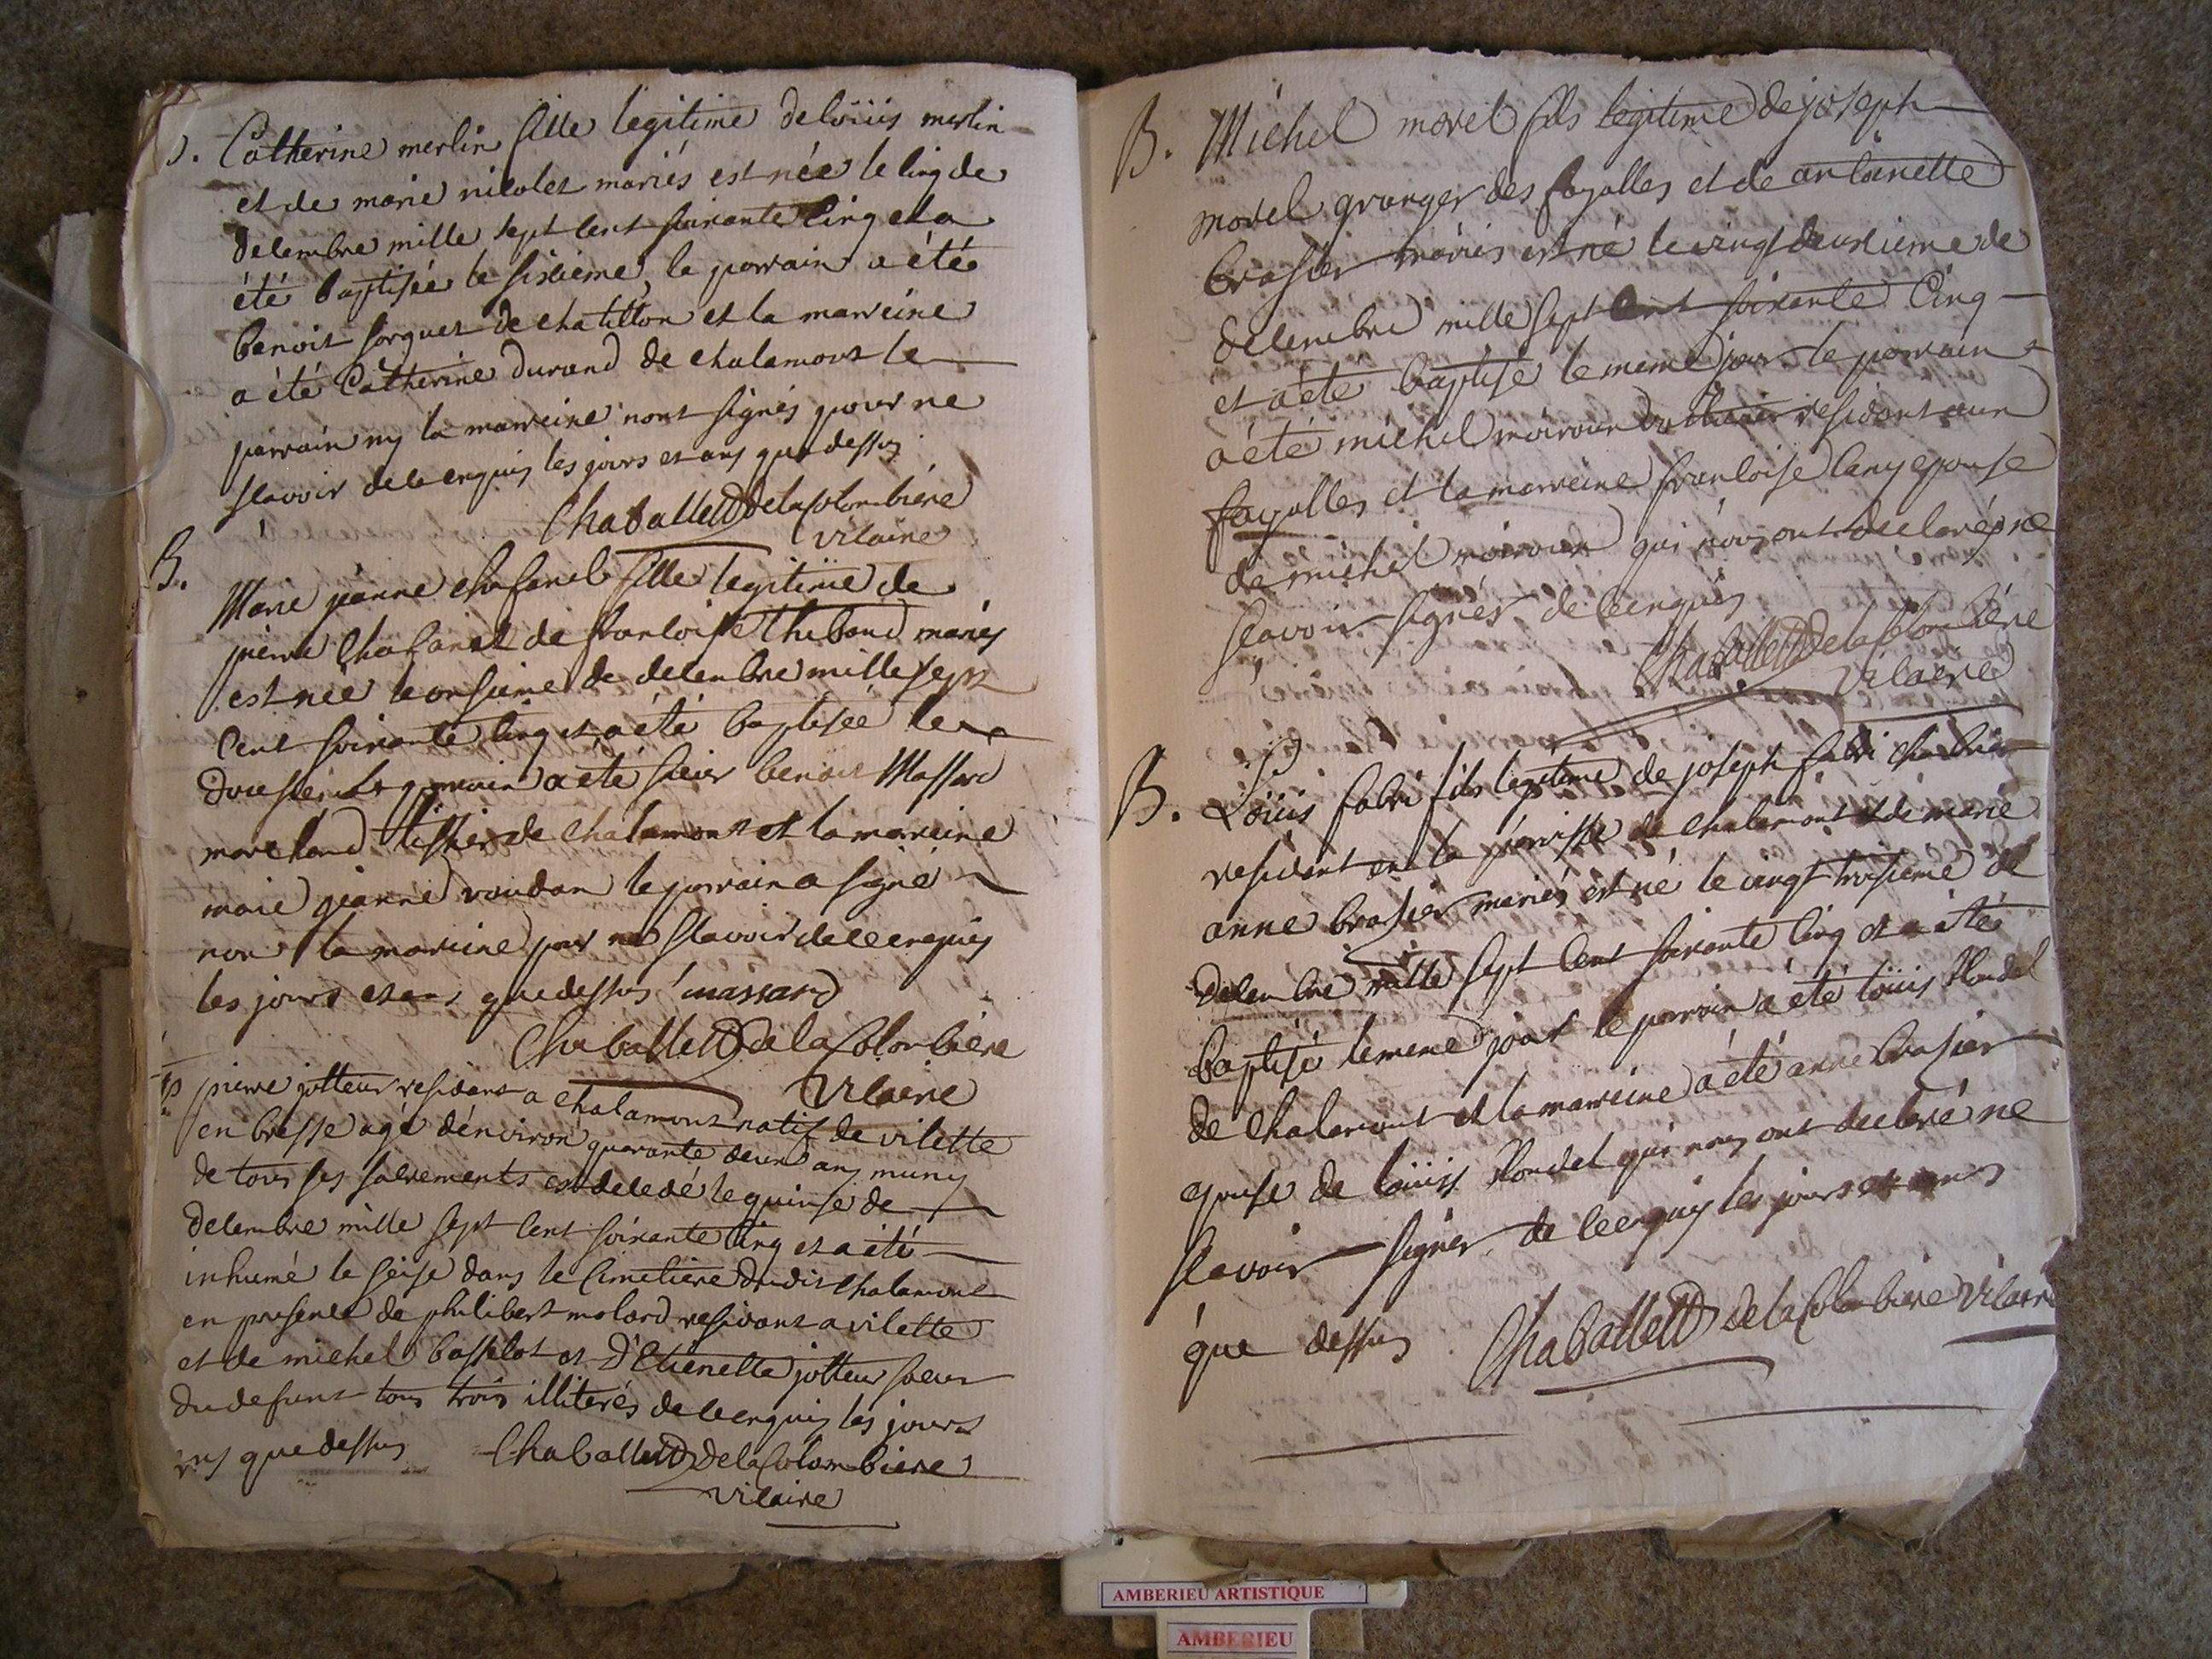 B. Catherine merlin fille legitime de loüis merlin
et de marie nicolet mariés est née le cinq de
decembre mille sept cent soixante cinq et a
été baptisée le sixieme, le parrain a été
benoit forquet de chatillon et la marreine
a été Catherine durand de chalamont le
parrain ny la marreine nont signés pour ne
scavoir de ce enquis les jours et ans que dessus
Chaballett de la Colombiere
vicaire
B.
Marie jeanne chafanel fille legitime de
pierre Chafanel de francoise Thiboud mariés
est née le onsieme de decembre mille sept
Cent soixante cinq et a été baptisée le
dousieme le parrain a été sieur benoit Massard
marchand de chalamont et la marreine
marie jeanne roudan le parrain a signé
non la marreine pour ne scavoir de ce enquis
les jours et ans que dessus massard
Chaballett de la Colombiere
Vicaire
S. pierre jotteur residant a chalamont natif de vilette
en bresse agé denviron quarante deux ans muny
de tous ses sacrements est decedé le quinse de
decembre mille sept cent soixante cinq et a été
inhumé le seise dans le Cimetiere dudit chalamont
en presence de philibert molard residant a vilette
et de michel basselot et D'Etienette jotteur soeur
du defunt tous trois illiterés de ce enquis les jours
ans que dessus Chaballett de la Colombiere
vicaire
B. Michel morel fils legitime de joseph
morel granger des fayolles et de antoinette
brasier mariés est né le vingt deuxieme de
decembre mille sept cent soixante Cinq
et a été baptisé le meme jour le parrain
a été michel moiroux residant aux
fayolles et la marreine francoise lany epouse
de michel moiroux qui nous ont declarés ne
scavoir signés de ce enquis
Chaballett de la Colombiere
vicaire
B. Loüis fabri fils legitime de joseph fabri
residant en la parroisse de chalamont et de marie
anne brasier mariés est né le vingt troisieme de
decembre mille sept cent soixante cinq et a été
baptisé le meme jour le parrain a été loüis Rondel
de chalamont et la marreine a été anne brasier
epouse de loüis Rondel qui nous ont declaré ne
scavoir signer de ce enquis les jours et ans
que dessus Chaballett de la Colombiere Vicaire
AMBERIEU ARTISTIQUE
AMBERIEU